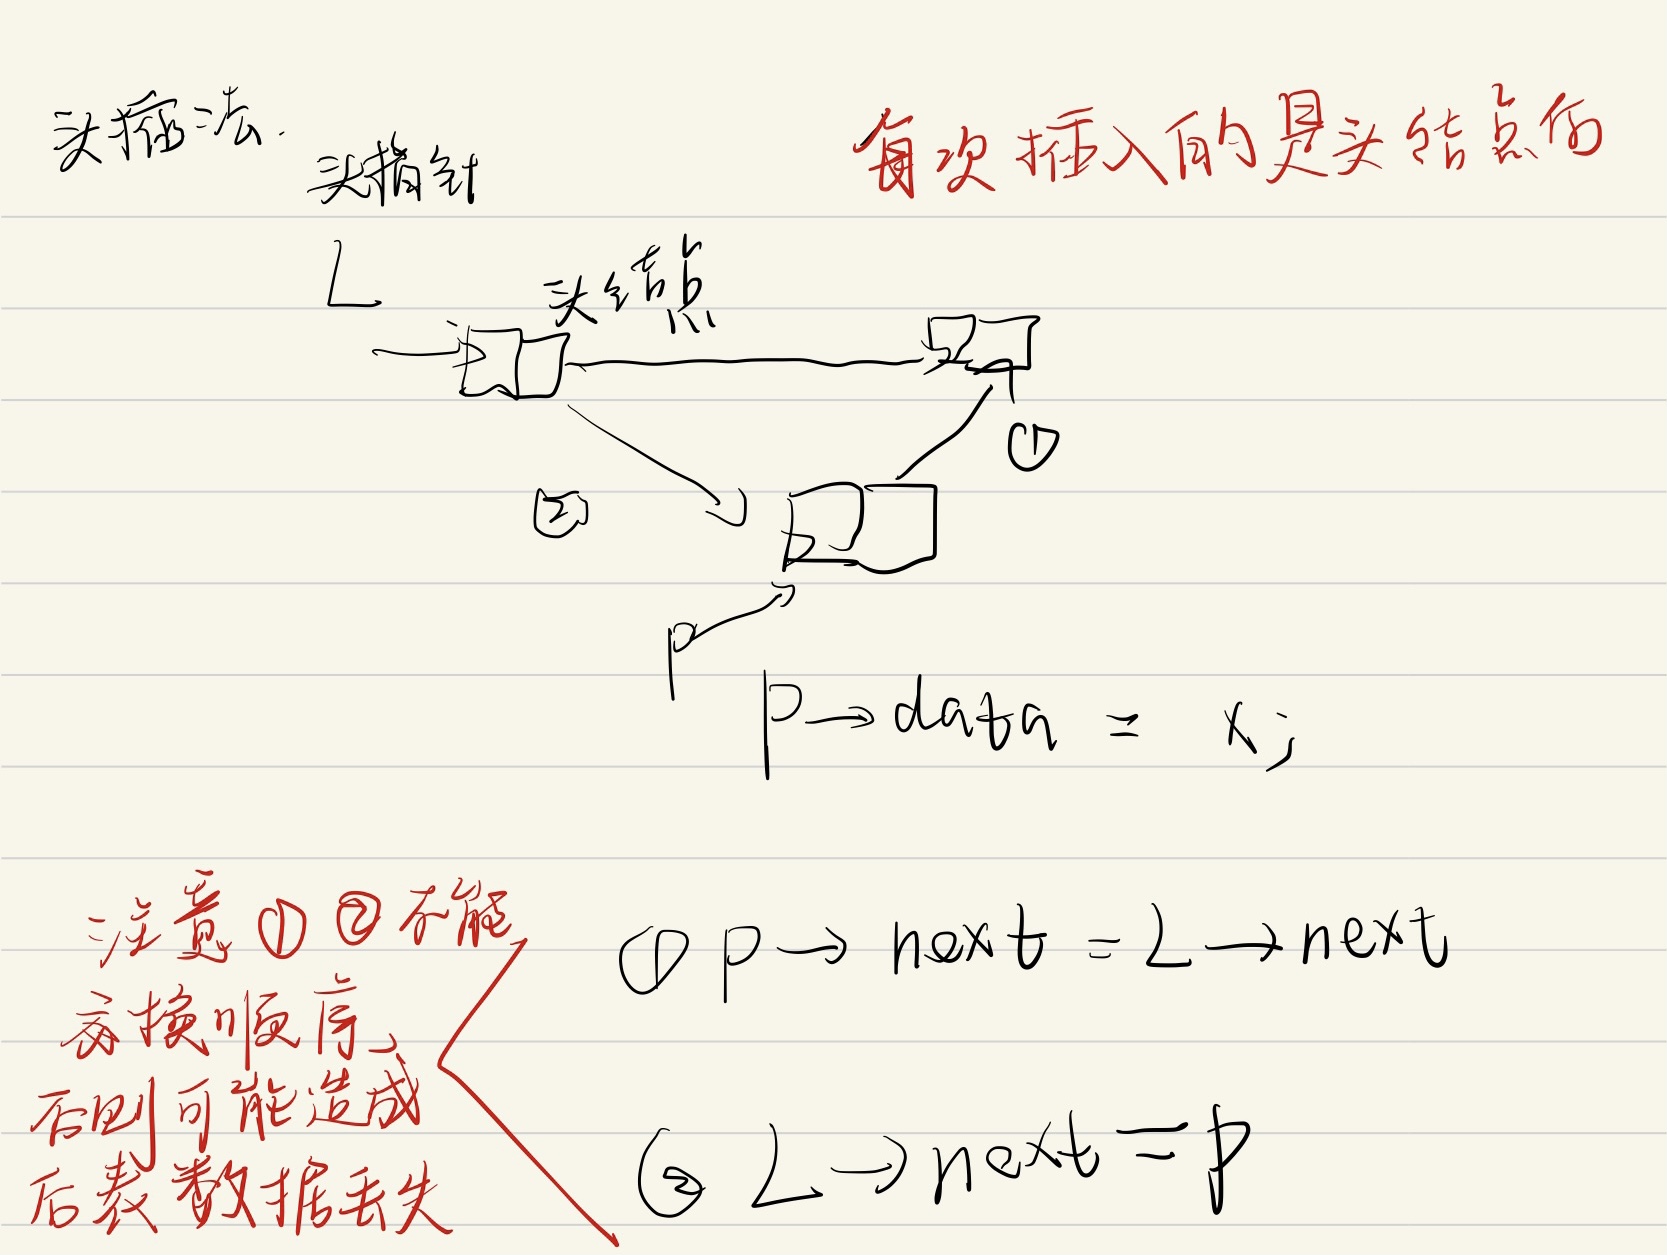 头插法.
每次插入的是头结点的
头指针
L
头结点
①
②
p
p→data = x;
注意①②不能
交换顺序,
否则可能造成
后表数据丢失
① p→next = L→next
② L→next = p